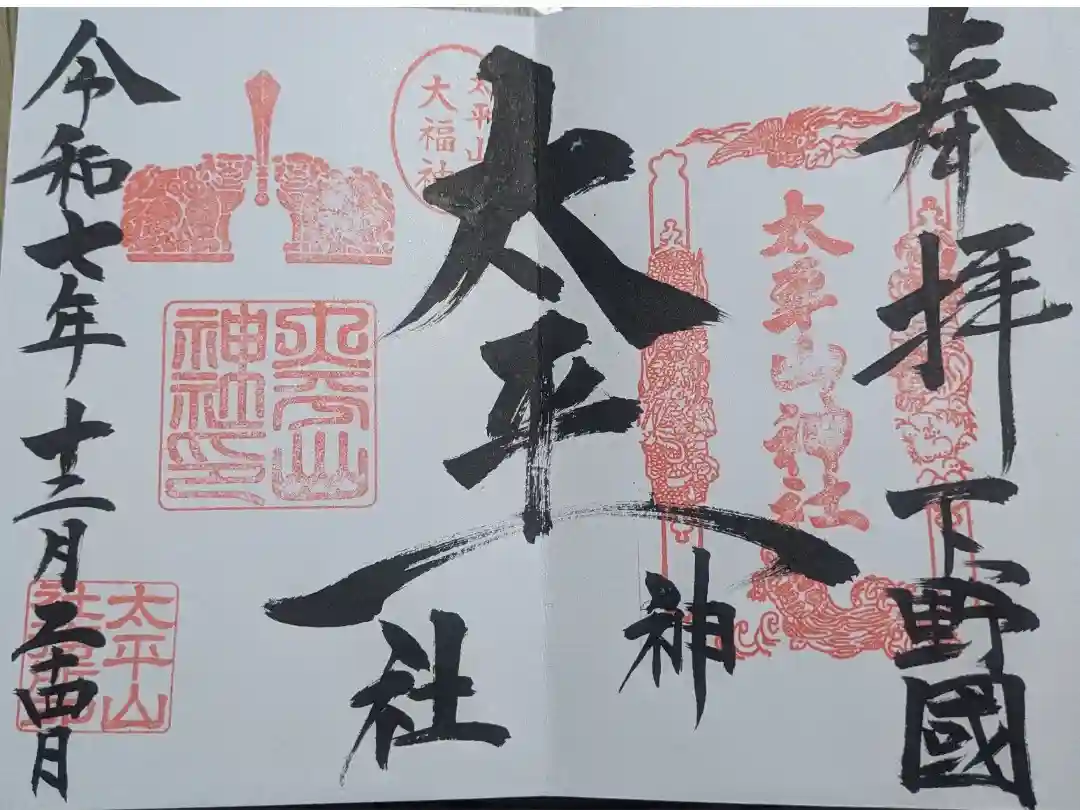 奉拝 下野國
太平山神社
太平
神社
太平山
大福
太平山
神社印
令和七年十二月二十四日
太平山